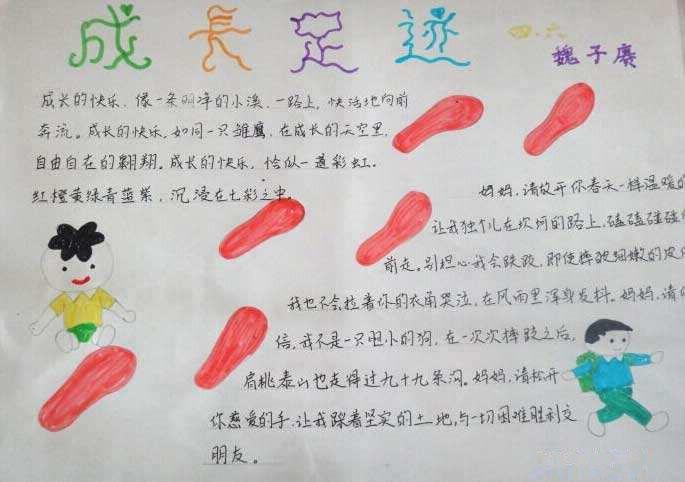 成長足迹
四.六
魏子赓
成长的快乐,像一条明净的小溪,一路上,快活地向前
奔流。成长的快乐,如同一只雏鹰,在成长的天空里,
自由自在的翱翔。成长的快乐,恰似一道彩虹.
红橙黄绿青蓝紫,沉浸在七彩之中。
妈妈,请放开你春天一样温暖的
让我独个儿在坎坷的路上,磕磕碰碰
前走。别担心我会跌跤,即使摔破细嫩的皮
我也不会拉着你的衣角哭泣,在风雨里浑身发抖。妈妈,请
信,我不是一只胆小的狗,在一次次摔跤之后,
肩挑泰山也走得过九十九条沟。妈妈,请松开
你慈爱的手,让我踩着坚实的土地,与一切困难胜利交
朋友。